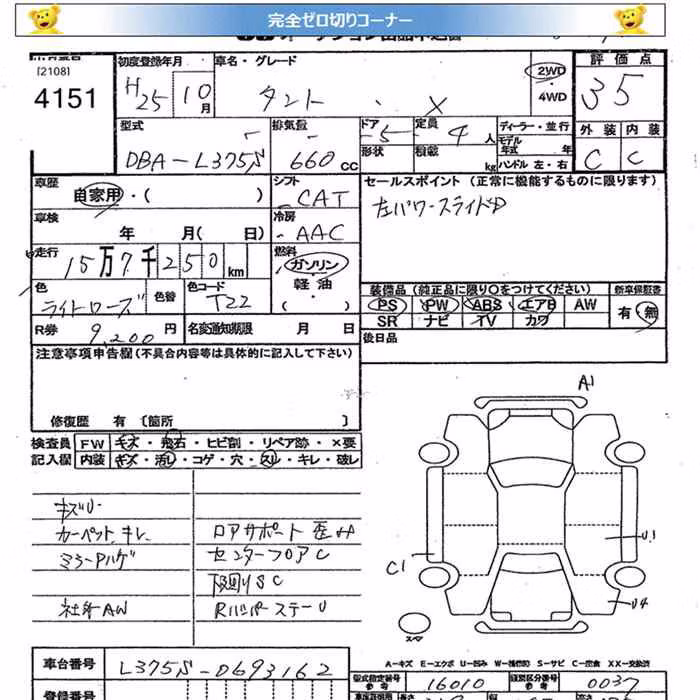 完全ゼロ切りコーナー
[2108]
4151
初度登録年月
H25 10月
車名・グレード
タント ・ X
2WD
・4WD
評価点
35
外装 内装
C C
型式
DBA-L375S
排気量
660cc
ドア
-5
形状
定員
4人
積載 kg
ディーラー・並行
モデル年式 年
ハンドル 左・右
車歴
自家用・( )
シフト
CAT
セールスポイント (正常に機能するものに限ります)
左パワースライドD
車検
年 月( 日)
冷房
AAC
走行
15万7千250km
燃料
ガソリン
軽油
( ・ )
色
ライトローズ
色替
色コード
T22
装備品 (純正品に限り○をつけてください)
PS PW ABS エアB AW
SR ナビ TV カワ
新車保証書
有・無
R券 9,200円
名変通知期限 月 日
後日品
注意事項申告欄(不具合内容等は具体的に記入して下さい)
修復歴 有 [箇所 ]
検査員記入欄
FW キズ・飛石・ヒビ割・リペア跡・×要
内装 キズ・汚し・コゲ・穴・スレ・キレ・破レ
キズU
カーペットキレ
ロアサポート歪み
ミラーAハゲ
センターフロアC
下廻りSC
社外AW
RバンパーステーU
A1
C1
U1
U4
スペア
A-キズ E-エクボ U-凹み W-補修跡 S-サビ C-腐食 XX-交換済
車台番号
L375S-0693162
型式指定番号
参考
16010
類別区分番号
参考
0037
登録番号
長さ